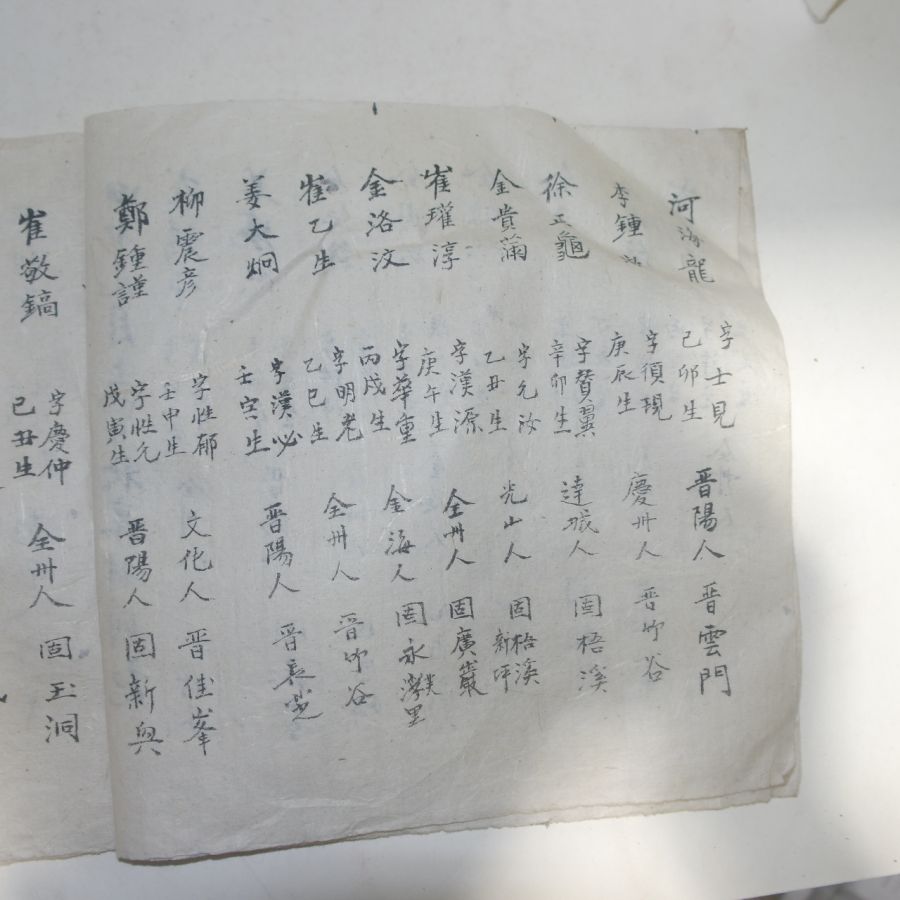 河海龍 字士見 己卯生 晋陽人 晋雲門
李鍾 字須現 庚辰生 慶卅人 晋竹谷
徐工龜 字賛翼 辛卯生 達城人 固梧溪
金貴 字允汝 乙丑生 光山人 固梧溪 新坪
崔瓘淳 字漢源 庚午生 全卅人 固廣巖
金洛汶 字華重 丙戌生 金海人 固永濮里
崔乙生 字明老 乙巳生 全卅人 晋竹谷
姜大炯 字漢必 壬寅生 晋陽人 晋
柳震彦 字性郁 壬申生 文化人 晋佳峯
鄭鍾謹 字性允 戊寅生 晋陽人 固新興
崔敬鎬 字慶仲 己丑生 全卅人 固玉洞